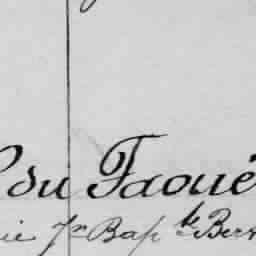 du Faoué
rie Jn Bapte Ber